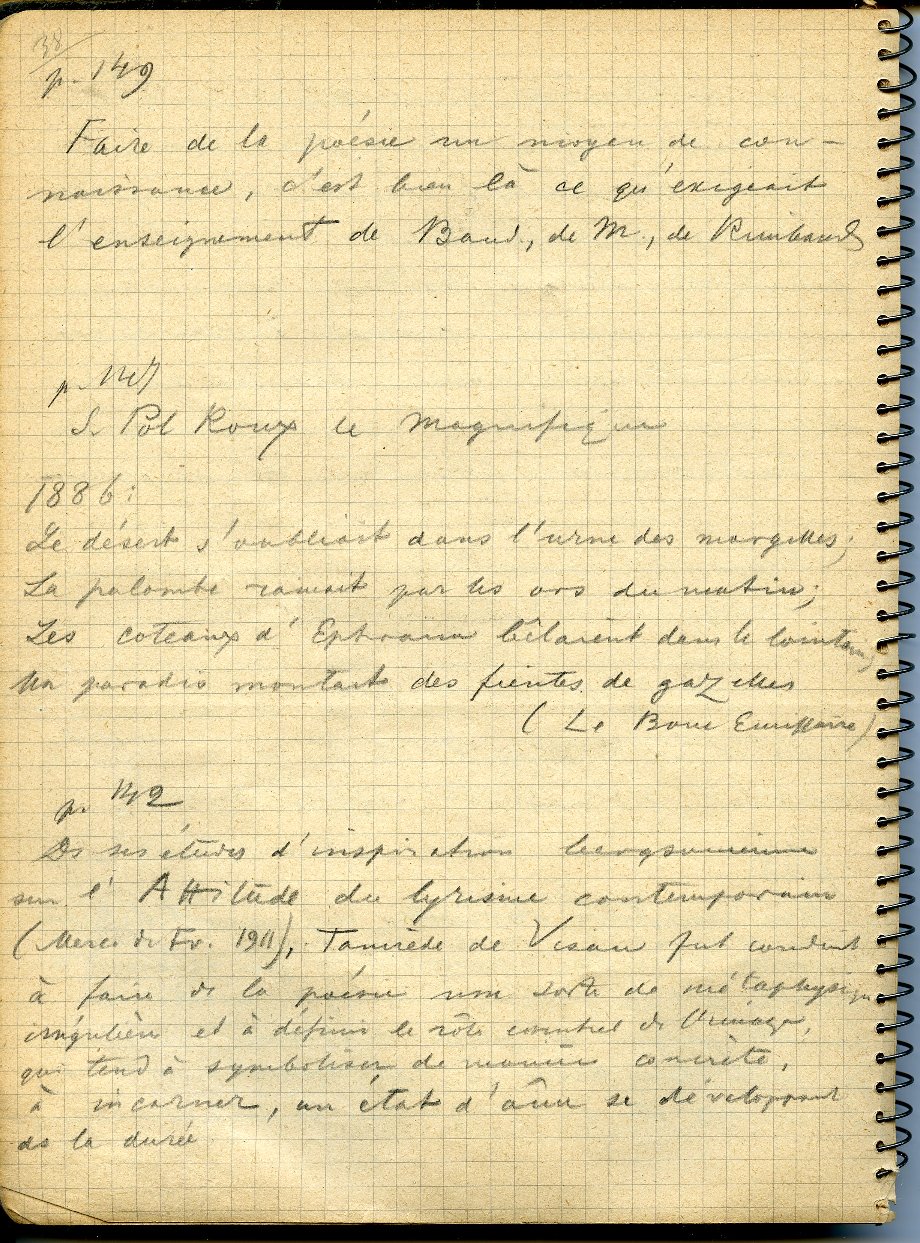 38
p. 149
Faire de la poésie un moyen de con-
naissance, c'est bien là ce qu'exigeait
l'enseignement de Baud., de M., de Rimbaud
p. 147
S. Pol Roux le Magnifique
1886:
Le désert s'oubliait dans l'urne des margelles;
La palombe ramait par les ors du matin;
Les coteaux d'Ephraïm bêlaient dans le lointain,
Un paradis montait des fientes de gazelles
(Le Bouc Emissaire)
p. 142
Ds ses études d'inspiration bergsonienne
sur l'Attitude du lyrisme contemporain
(Merc. de Fr. 1911), Tancrède de Visan fut conduit
à faire de la poésie une sorte de métaphysique
irrégulière et à définir le rôle essentiel de l'image,
qui tend à symboliser de manière concrète,
à incarner, un état d'âme se développant
ds la durée